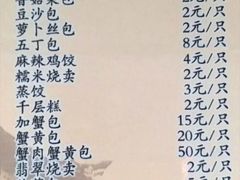 香菇菜包 2元/只
豆沙包 2元/只
萝卜丝包 2元/只
五丁包 8元/只
麻辣鸡饺 4元/只
糯米烧卖 2元/只
蒸饺 3元/只
千层糕 2元/只
加蟹包 15元/只
蟹黄包 20元/只
蟹肉蟹黄包 50元/只
翡翠烧卖 5元/只